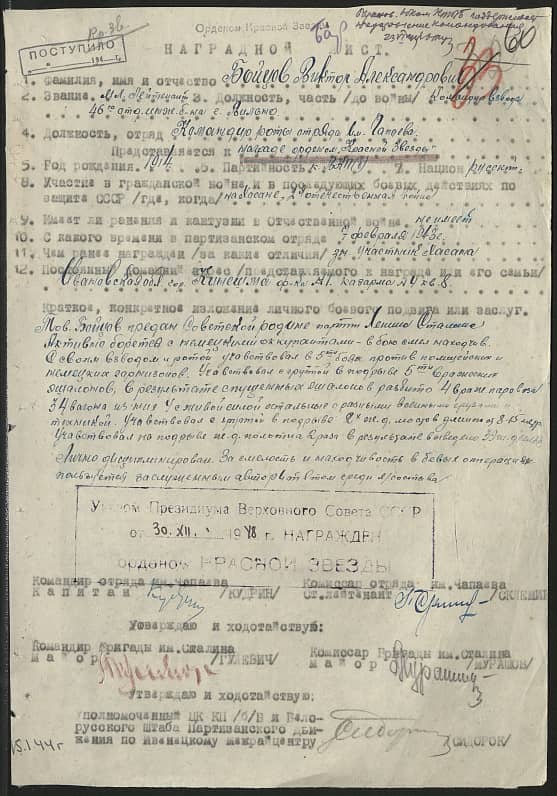 Орденом Красной Звезды
ПОСТУПИЛО
194 г.
НАГРАДНОЙ ЛИСТ.
60
1. Фамилия, имя и отчество Бойцов Виктор Александрович
2. Звание мл. лейтенант 3. Должность, часть /до войны/ Командир взвода
46 г. Вильно
4. Должность, отряд Командир роты отряда им. Чапаева
Представляется к награде орденом "Красной Звезды"
5. Год рождения 1914 6. Партийность 7. Национ русский
8. Участие в гражданской войне и в последующих боевых действиях по
защите СССР /где, когда/ на Хасане, Отечественной войне
9. Имеет ли ранения и кантузии в Отечественной войне не имеет
10. С какого времени в партизанском отряде 7 февраля 1943г.
11. Чем ранее награжден /за какие отличия/ Участник Хасана
12. Постоянный домашний адрес /представляемого к награде или его семьи/
Ивановская обл. гор. Кинешма ф-ка №1. казарма №4 кв. 8.
Краткое, конкретное изложение личного боевого подвига или заслуг.
Тов. Бойцов предан Советской родине партии Ленина Сталина
Активно борется с немецкими оккупантами - в бою смел находчив.
Со своим взводом и ротой участвовал в 5ти боях против полицейских и
немецких гарнизонов. Участвовал с группой в подрыве 5ти вражеских
эшалонов, в результате спущенных эшалонов разбито 4 враж. паровоза
34 вагона из них 7 с живой силой остальные с разными военными грузами и
техникой. Участвовал с группой в подрыве 2х ж.д. мостов длиной
Участвовал на подрыве ж.д. полотна врага в результате выведено
Лично дисциплинирован. За смелость и находчивость в боевых операциях
пользуется заслуженным авторитетом среди л/состава
Указом Президиума Верховного Совета СССР
от 30. XII. 1948 г. НАГРАЖДЕН
орденом КРАСНОЙ ЗВЕЗДЫ
Командир отряда им. Чапаева
Капитан /КУДРИН/
Комиссар отряда им. Чапаева
Ст. лейтенант
Утверждаю и ходотайствую:
Командир Бригады им. Сталина
Майор /ГУЛЕВИЧ/
Комиссар Бригады им. Сталина
майор /МУРАШОВ/
Утверждаю и ходотайствую:
Уполномоченный ЦК КП/б/Б и Бело-
русского Штаба Партизанского дви-
жения по Ивенецкому межрайцентру /СИДОРОК/
15.1.44 г